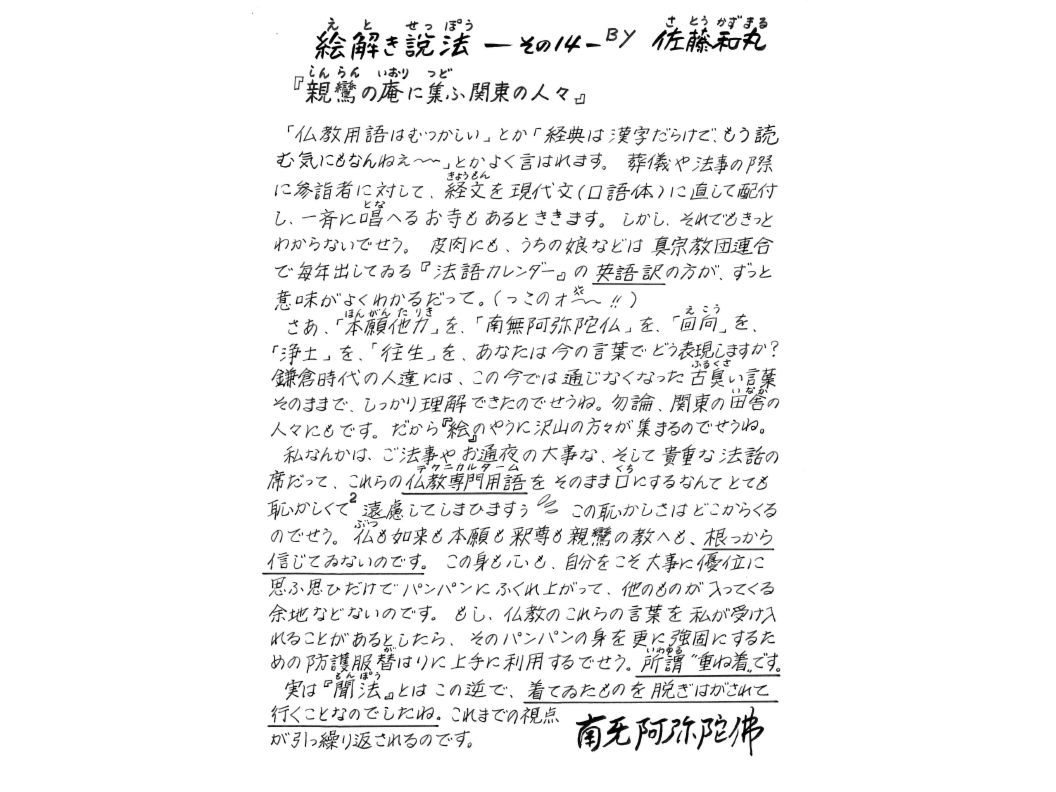 絵解き説法 ―その14― BY 佐藤和丸
『親鸞の庵に集ふ関東の人々』
「仏教用語はむつかしい」とか「経典は漢字だらけで、もう読
む気にもなんねえ〜〜」とかよく言はれます。 葬儀や法事の際
に参詣者に対して、経文を現代文(口語体)に直して配付
し、一斉に唱へるお寺もあるとききます。 しかし、それでもきっと
わからないでせう。 皮肉にも、うちの娘などは真宗教団連合
で毎年出してゐる『法語カレンダー』の英語訳の方が、ずっと
意味がよくわかるだって。(っこのォ〜〜!!)
さあ、「本願他力」を、「南無阿弥陀仏」を、「回向」を、
「浄土」を、「往生」を、あなたは今の言葉でどう表現しますか?
鎌倉時代の人達には、この今では通じなくなった古臭い言葉
そのままで、しっかり理解できたのでせうね。勿論、関東の田舎の
人々にもです。だから『絵』のやうに沢山の方々が集まるのでせうね。
私なんかは、ご法事やお通夜の大事な、そして貴重な法話の
席だって、これらの仏教専門用語をそのまま口にするなんてとても
恥かしくて2遠慮してしまひますぅ この恥かしさはどこからくる
のでせう。仏も如来も本願も釈尊も親鸞の教へも、根っから
信じてゐないのです。 この身も心も、自分をこそ大事に優位に
思ふ思ひだけでパンパンにふくれ上がって、他のものが入ってくる
余地などないのです。 もし、仏教のこれらの言葉を私が受け入
れることがあるとしたら、そのパンパンの身を更に強固にするた
めの防護服替はりに上手に利用するでせう。所謂〝重ね着〟です。
実は『聞法』とはこの逆で、着てゐたものを脱ぎはがされて
行くことなのでしたね。これまでの視点
が引っ繰り返されるのです。
南无阿弥陀佛